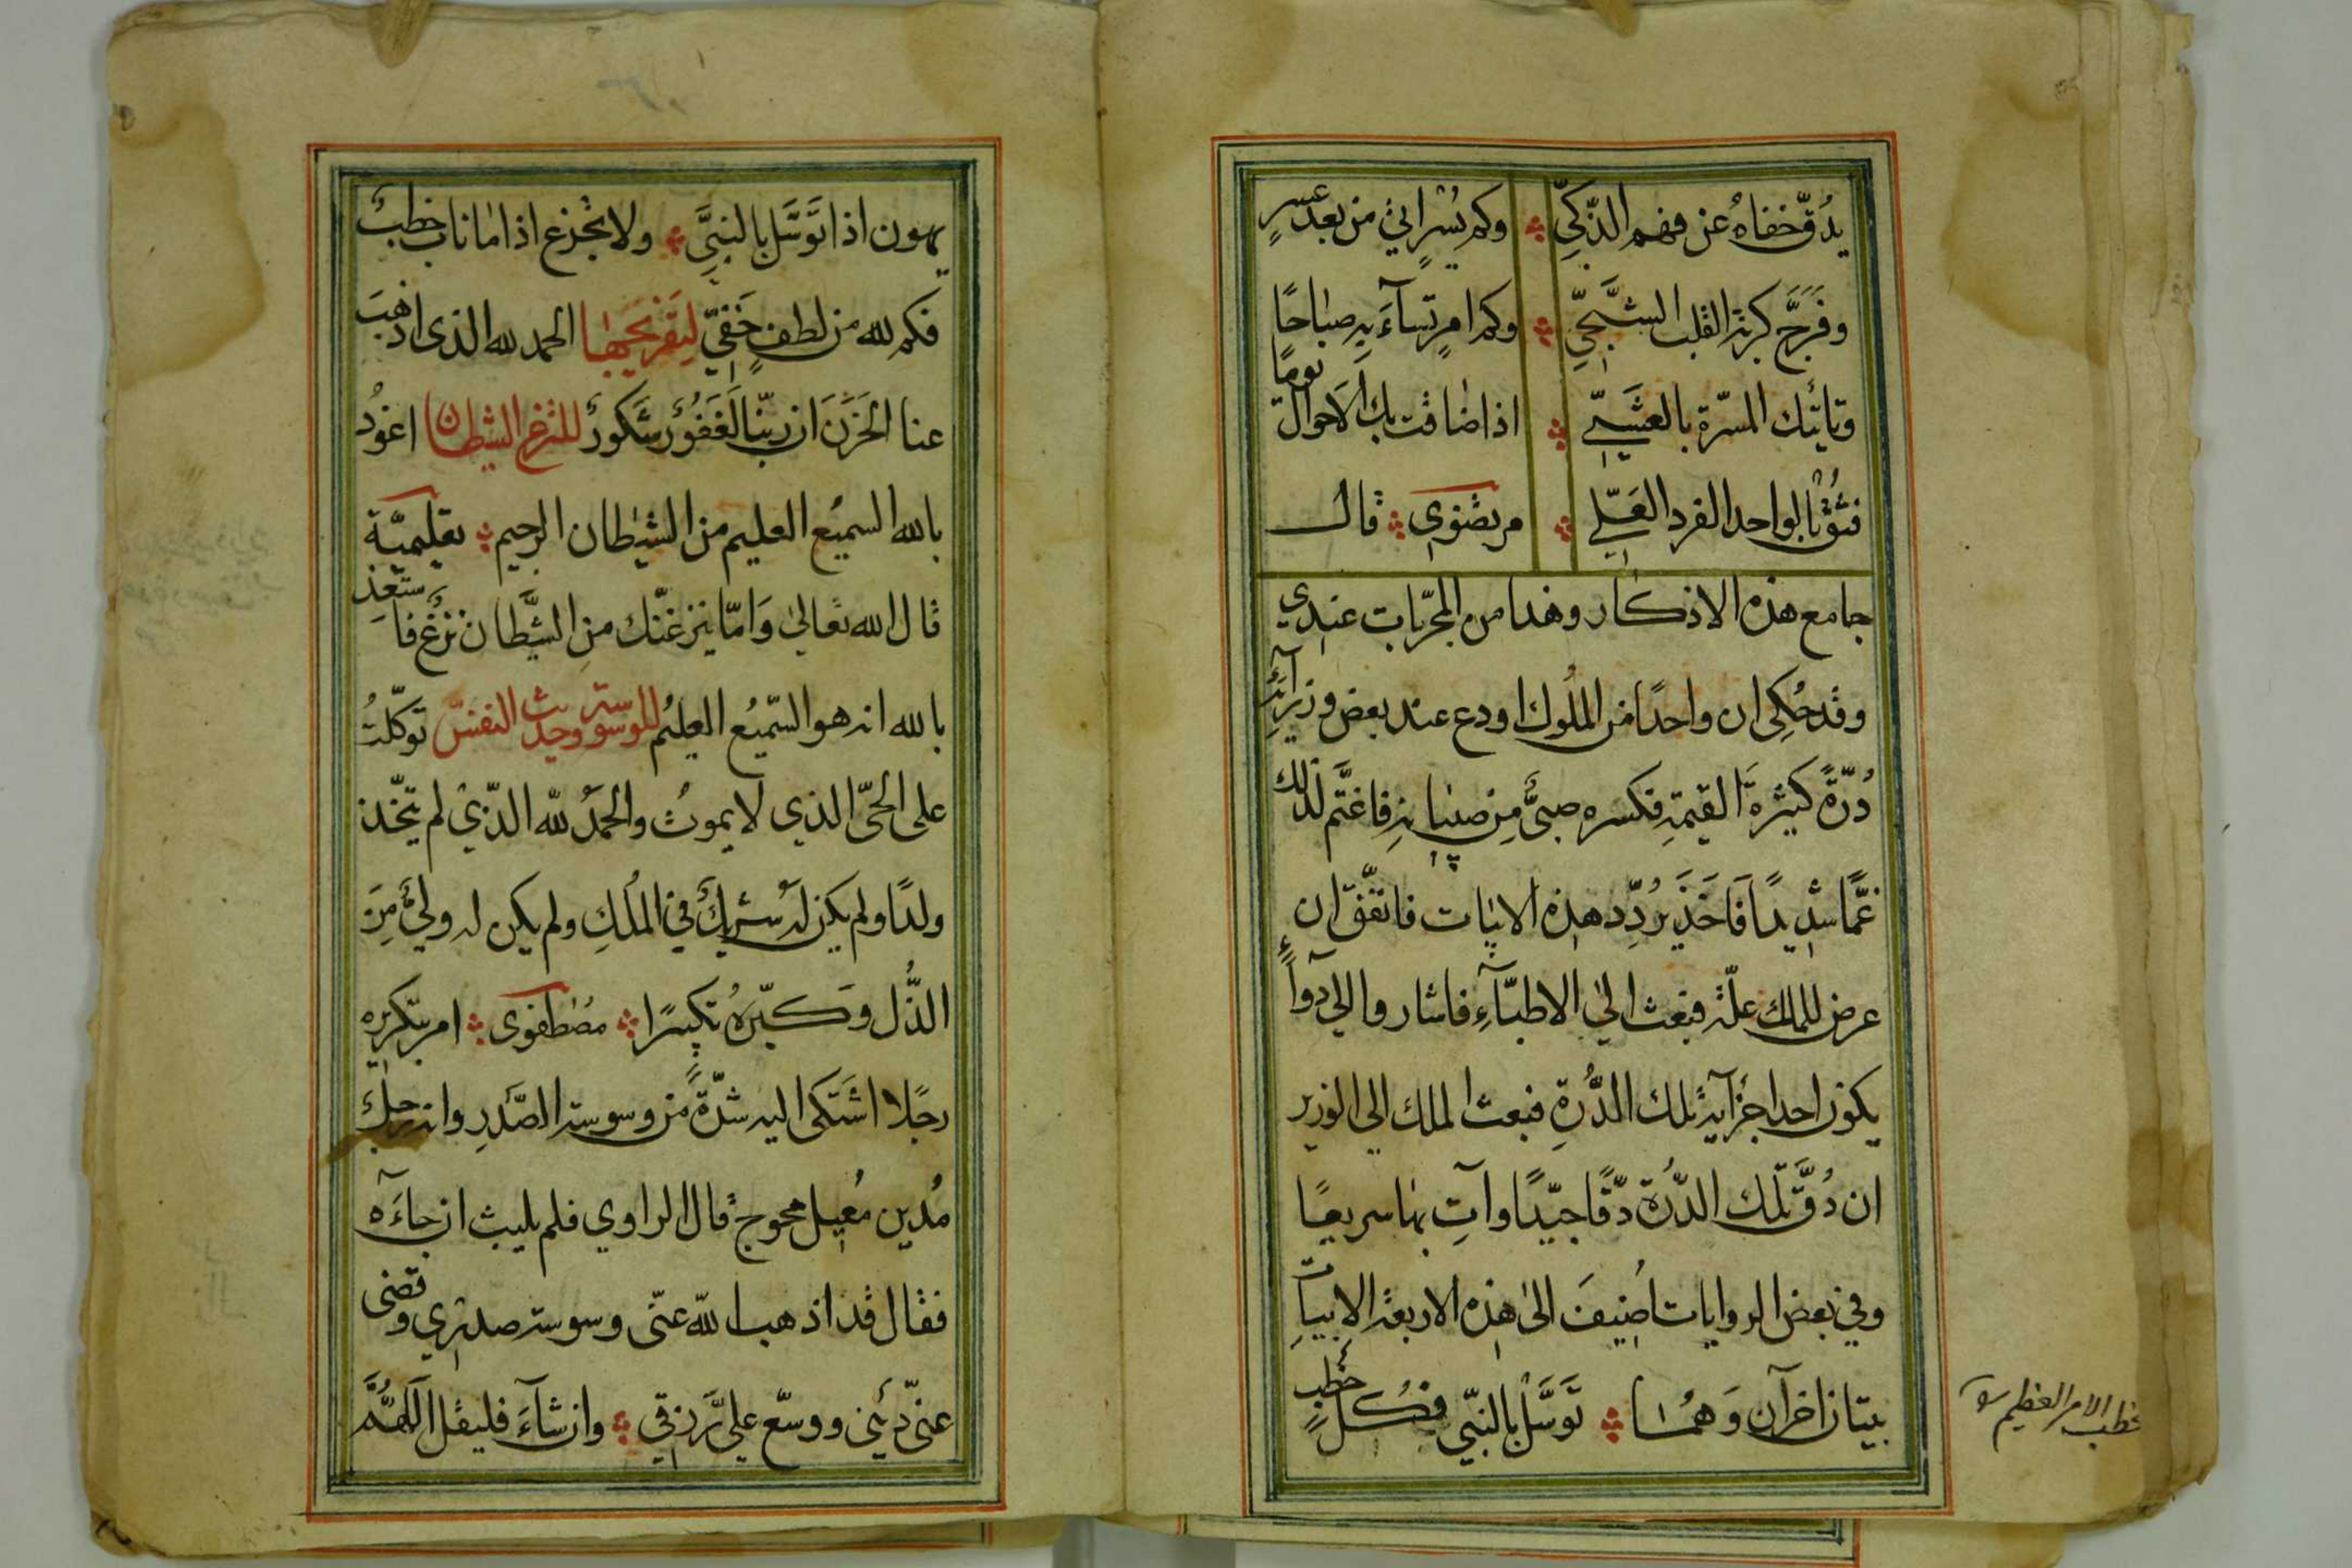 يُدَقّ خفاهُ عن فهم الذّكيِّ وكم يُسْرٍ اتيٰ من بعد عسرٍ
وفَرَّجَ كربة القلب الشَّجيّ وكم امرٍ تُساۤءُ بِهِ صباحًا
وتاتيك المسرّة بالعشيّ اذا ضاقت بك الاحوال يومًا
فثق بالواحد الفرد العَليّ مرتضوي قال
جامع هذه الاذكار وهذا من المجرّبات عندي
وقد حُكِي ان واحدًا من الملُوك اودع عند بعض وزرآئه
دُرّةً كثيرة القيمة فكسره صبيٌّ من صبيانه فاغتمّ لذلك
غمًّا شديدًا فَاَخَذَ يُردِّد هذه الابيات فاتفّق ان
عرض للملك علّة فبعث الي الاطبّآءِ فاشاروا الي دوآءٍ
يكون احد اجزآئه تلك الدُّرةِ فبعث الملك الي الوزير
ان دُقَّ تلك الدّرة دقًّا جيّدًا وآتِ بها سريعًا
وفي بعض الروايات اُضيفَ الى هذه الاربعة الابيات
بيتان اخرآن وَهُما تَوَسَّلْ بالنبّي فكلّ خَطبٍ
خطب الامر العظيم
يهون اذا تَوُسِّل بالنبيِّ ولا تجزع اذا ما ناب خطبٌ
فكم لله من لطفٍ خَفيّ لتفريجها الحمد لله الذى اذهبَ
عنا الحَزَنَ ان ربّنا لَغَفُورٌ شَكورٌ للنزغ الشيطان اعُوذ
بالله السميع العليم من الشيطان الرجيم تعليميّة
قال الله تعالي وَامّا ينزغنّك منِ الشّيَطان نزغٌ فاستَعِذ
بالله انه هو السّميعُ العليُم للوسوسة وحديث النفس توكّلتُ
على الحيّ الذي لا يموتُ والحمدُ لله الذّي لم يتّخذ
ولدًا ولم يكن لهُ شريكٌ في المُلكِ ولم يكن له وليٌّ مِنَ
الذُّل وَكبّرهُ تكبيرًا مصطفوى امر بتكريره
رجلا اشتكى اليه شدّةً من وسوسة الصّدرِ وانه رجلٌ
مُدين مُعيل محوج قال الراوي فلم يلبث ان جاۤءَه
فقال قد اذهب الله عنّى وسوسة صدري وقضى
عنّي دَيْني ووسّع علي رزقي وان شآءَ فليقل اَللّهُمَّ